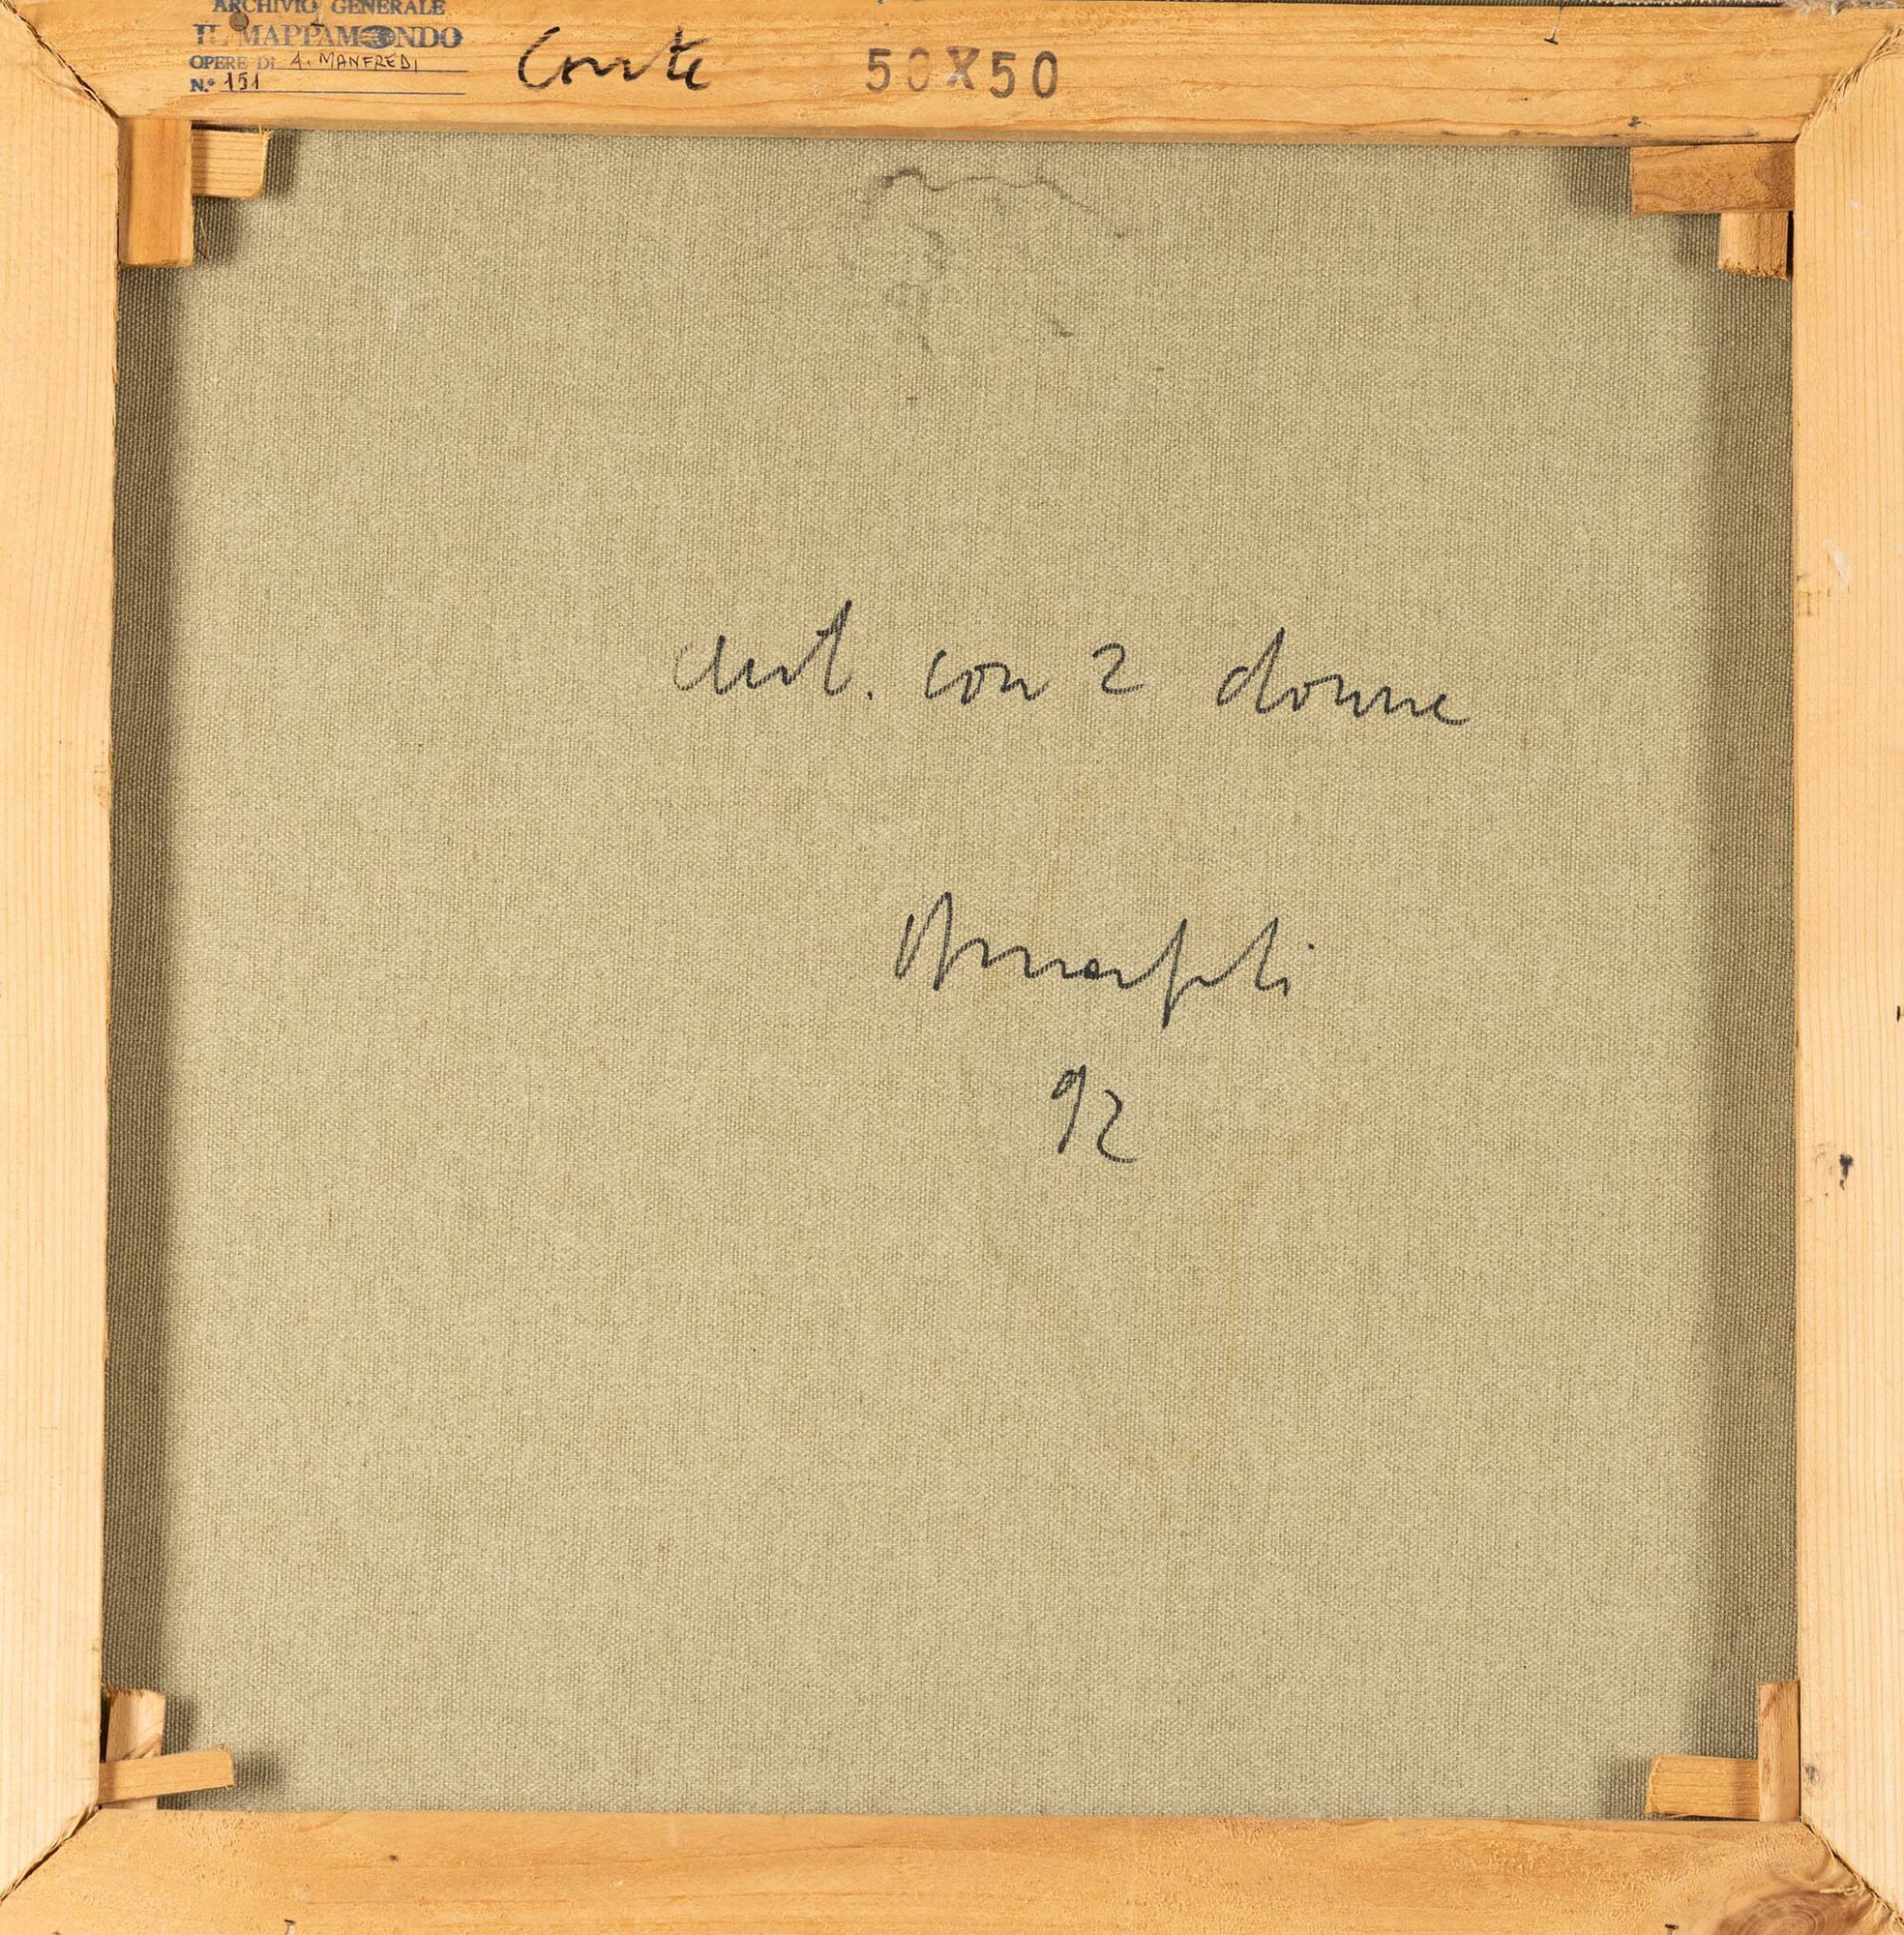 ARCHIVIO GENERALE
IL MAPPAMONDO
OPERE DI A. MANFREDI
N.º 151
Conte 50X50
con 2 donne
AManfredi
92